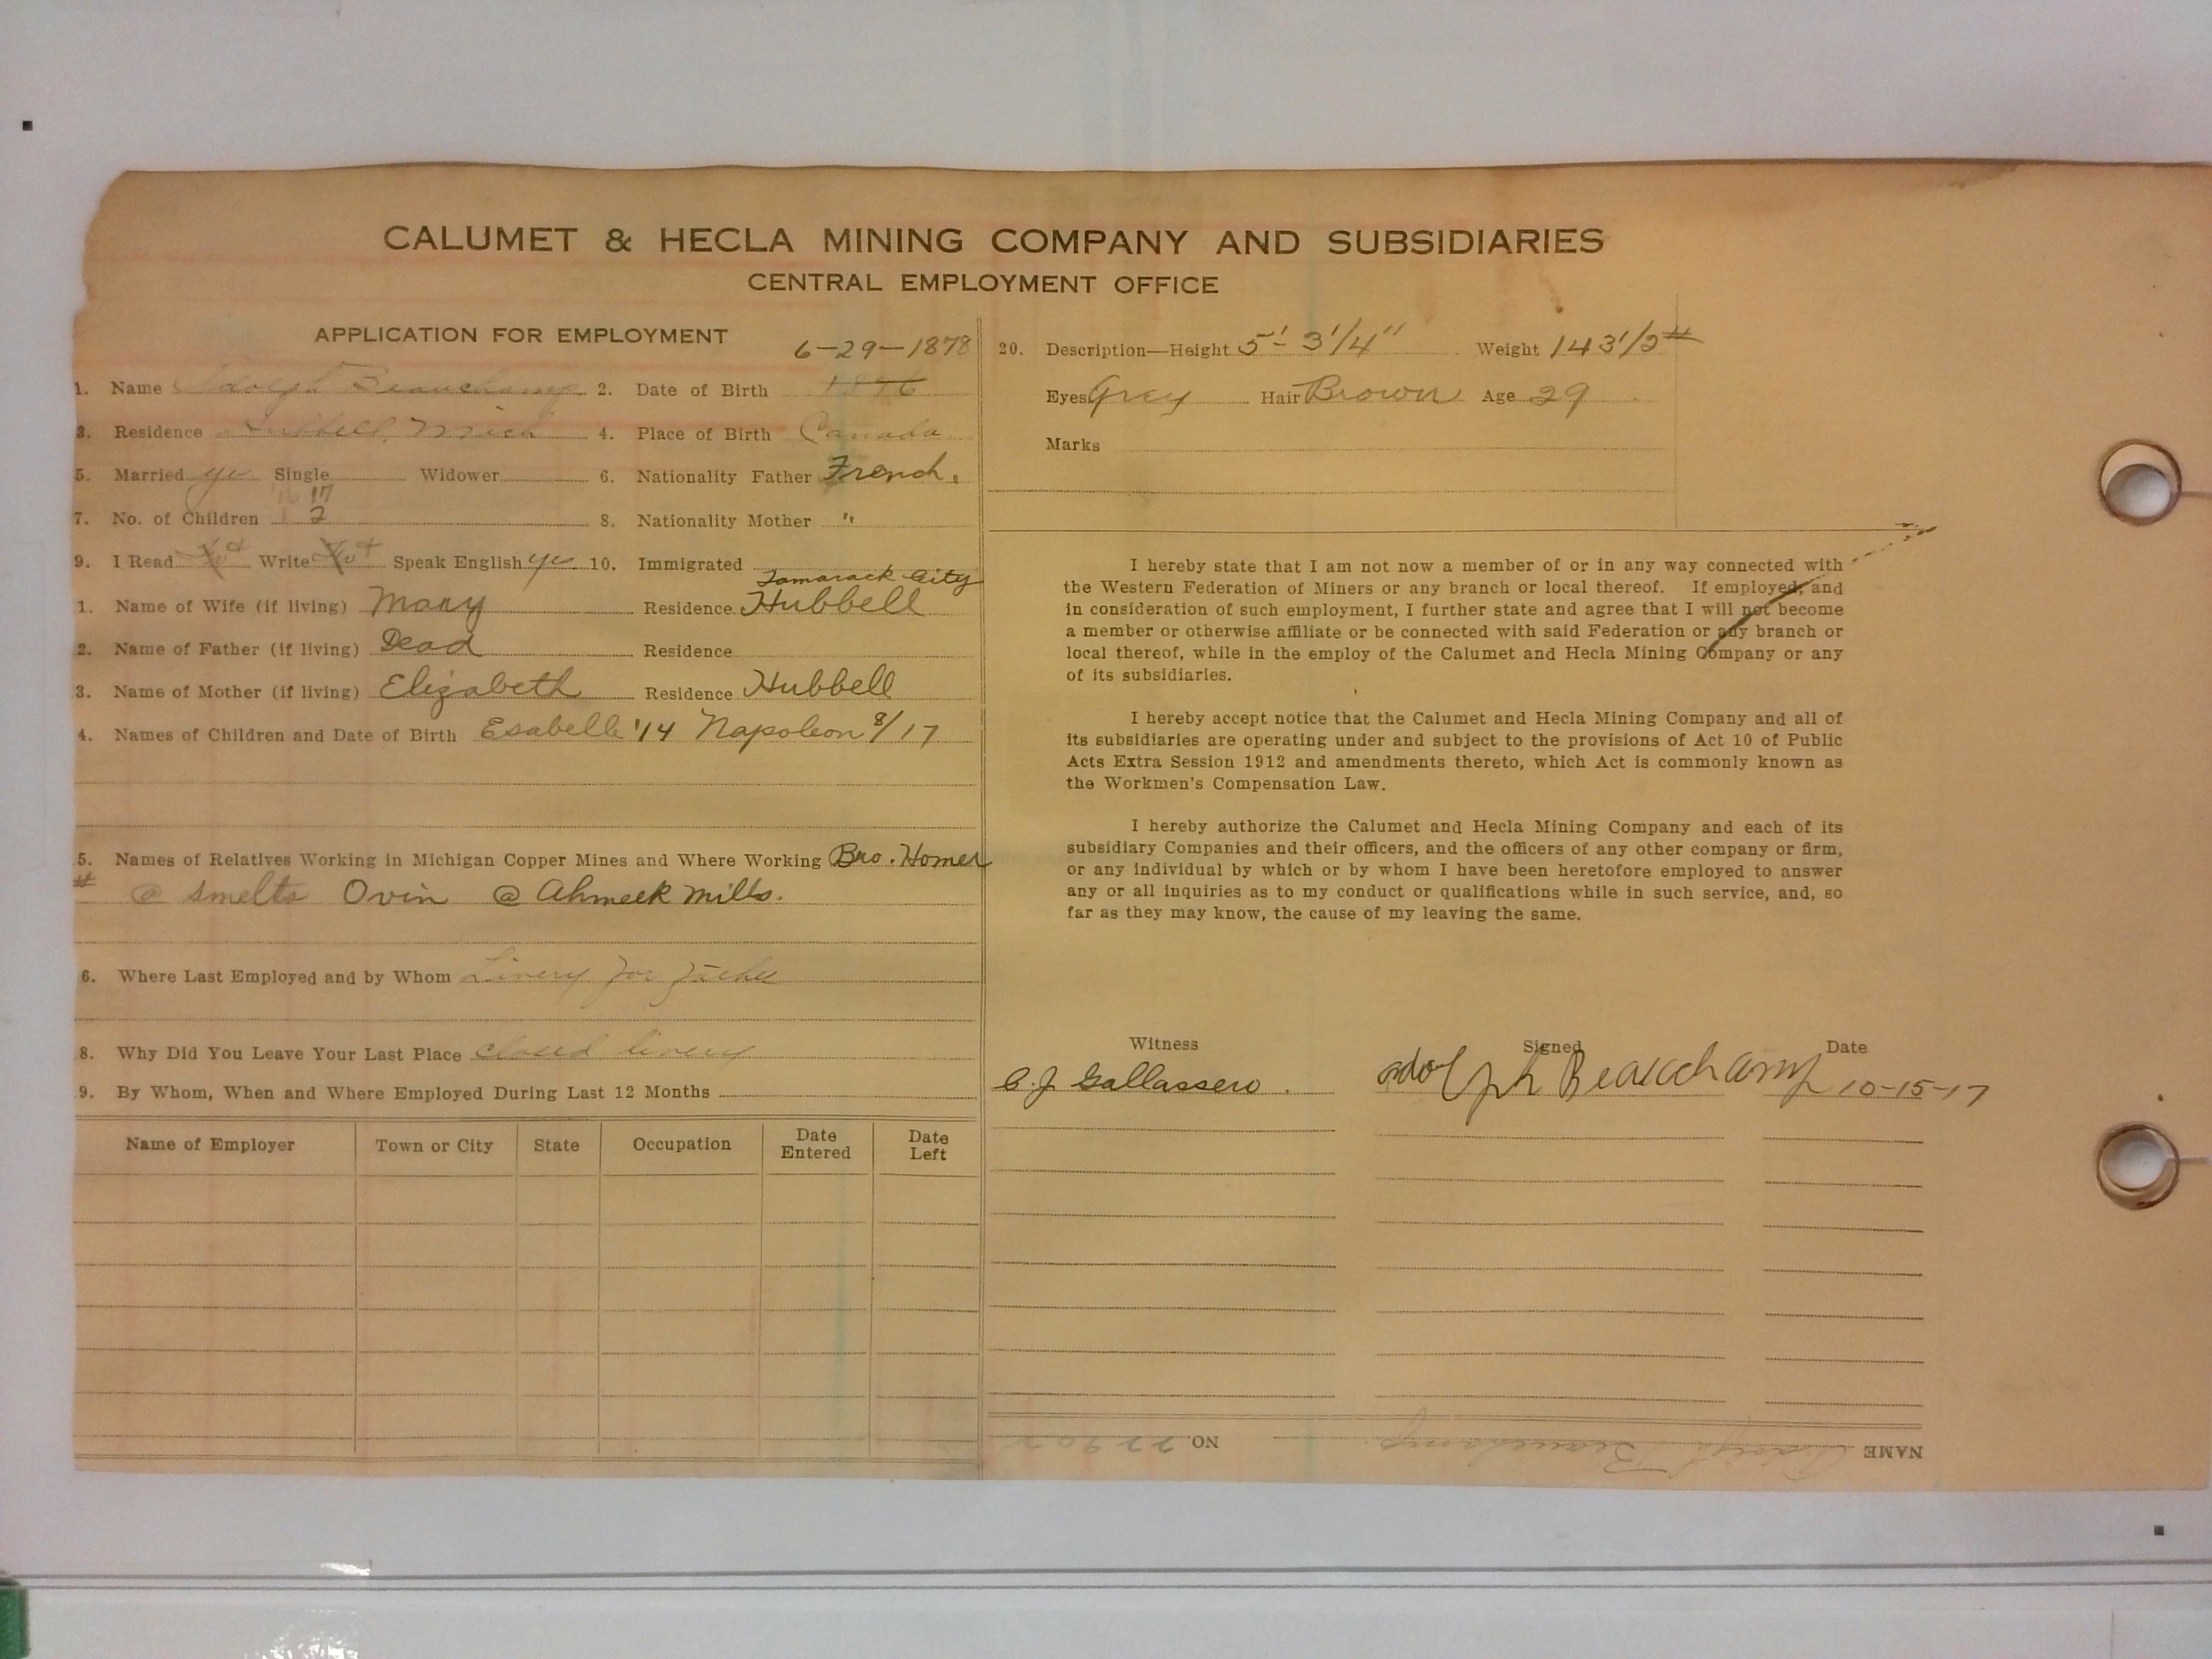 CALUMET & HECLA MINING COMPANY AND SUBSIDIARIES
CENTRAL EMPLOYMENT OFFICE
APPLICATION FOR EMPLOYMENT
6-29-1878
1. Name Adolph Beauchamp 2. Date of Birth 1876
3. Residence Hubbell, Mich 4. Place of Birth Canada
5. Married yes Single Widower 6. Nationality Father French.
'16 17
7. No. of Children 2 8. Nationality Mother "
9. I Read Write Speak English yes 10. Immigrated
Tamarack City
1. Name of Wife (if living) Mary Residence Hubbell
2. Name of Father (if living) Dead Residence
3. Name of Mother (if living) Elizabeth Residence Hubbell
4. Names of Children and Date of Birth Esabelle '14 Napoleon 8/17
5. Names of Relatives Working in Michigan Copper Mines and Where Working Bro. Homer
@ Smelts Ovin @ Ahmeek Mills.
6. Where Last Employed and by Whom Livery for father
8. Why Did You Leave Your Last Place closed livery
9. By Whom, When and Where Employed During Last 12 Months
Name of Employer Town or City State Occupation Date Entered Date Left
20. Description—Height 5'- 3 1/4" Weight 143 1/2#
Eyes Grey Hair Brown Age 39
Marks
I hereby state that I am not now a member of or in any way connected with
the Western Federation of Miners or any branch or local thereof. If employed, and
in consideration of such employment, I further state and agree that I will not become
a member or otherwise affiliate or be connected with said Federation or any branch or
local thereof, while in the employ of the Calumet and Hecla Mining Company or any
of its subsidiaries.
I hereby accept notice that the Calumet and Hecla Mining Company and all of
its subsidiaries are operating under and subject to the provisions of Act 10 of Public
Acts Extra Session 1912 and amendments thereto, which Act is commonly known as
the Workmen's Compensation Law.
I hereby authorize the Calumet and Hecla Mining Company and each of its
subsidiary Companies and their officers, and the officers of any other company or firm,
or any individual by which or by whom I have been heretofore employed to answer
any or all inquiries as to my conduct or qualifications while in such service, and, so
far as they may know, the cause of my leaving the same.
Witness Signed Date
C. J. Gallassero. Adolph Beauchamp 10-15-17
NAME Adolph Beauchamp NO.